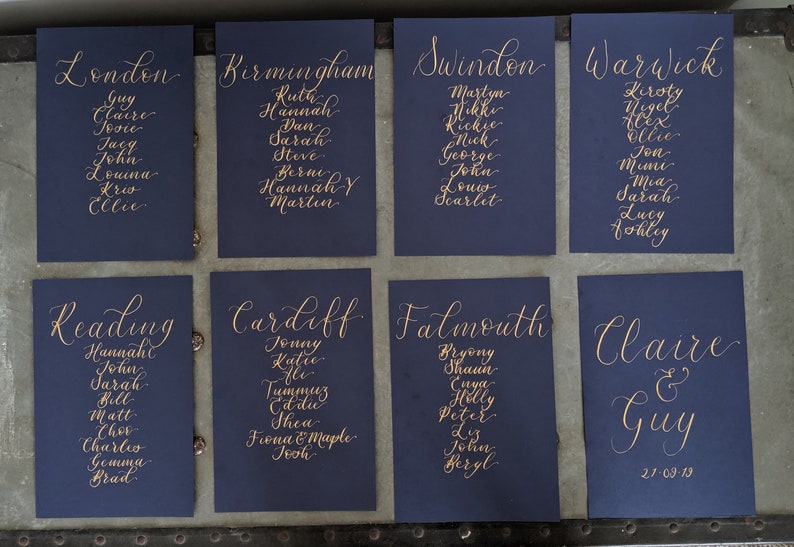 London
Guy
Claire
Josie
Jacq
John
Louina
Kris
Ellie
Birmingham
Ruth
Hannah
Dan
Sarah
Steve
Berni
Hannah Y
Martin
Swindon
Martyn
Nikki
Rickie
Nick
George
John
Louis
Scarlet
Warwick
Kirsty
Nigel
Alex
Ollie
Jon
Mimi
Mia
Sarah
Lucy
Ashley
Reading
Hannah C
John
Sarah
Bill
Matt
Choo
Charles
Gemma
Brad
Cardiff
Jonny
Katie
Ali
Tummuz
Eddie
Shea
Fiona & Maple
Josh
Falmouth
Bryony
Shaun
Enya
Holly
Peter
Liz
John
Beryl
Claire
&
Guy
21·09·19